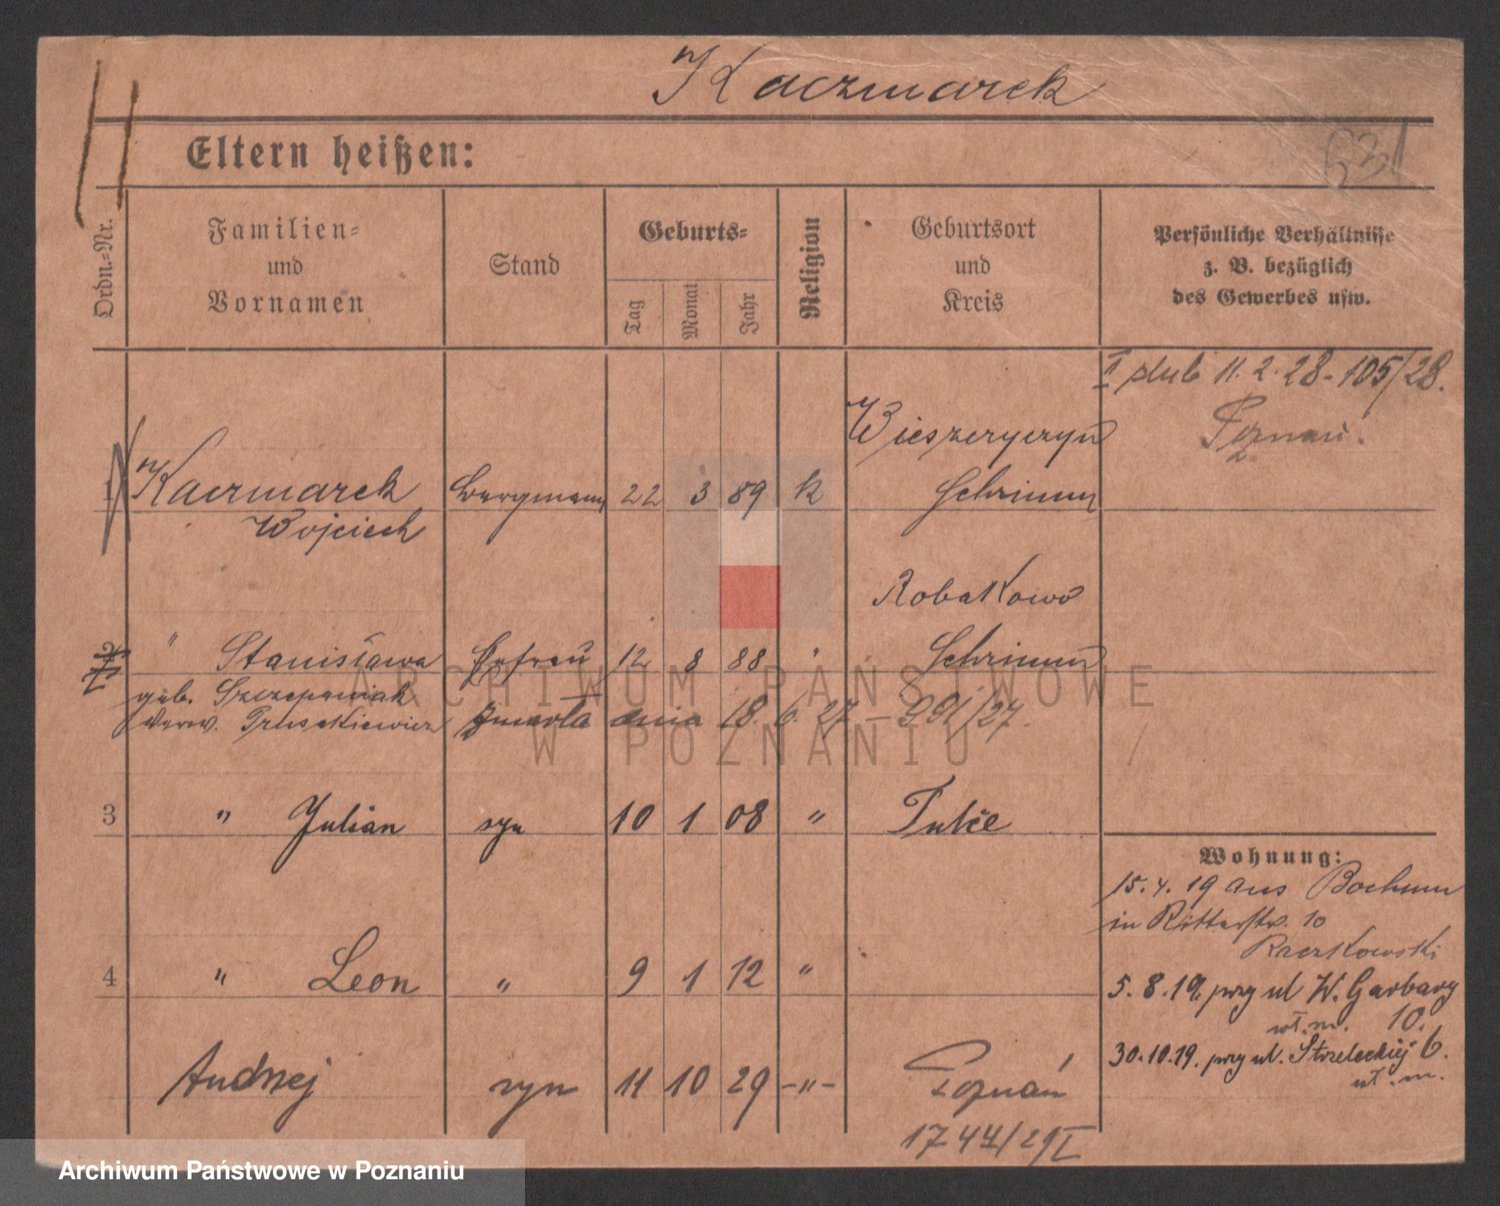 Kaczmarek
Eltern heißen:
Ordn.-Nr.
Familien-
und
Vornamen
Stand
Geburts-
Tag
Monat
Jahr
Religion
Geburtsort
und
Kreis
Persönliche Verhältnisse
z. B. bezüglich
des Gewerbes usw.
II ślub 11.2.28 - 105/28.
Poznań.
1 Kaczmarek Bergmann 22 3 89 k
Wojciech
Schrimm
Robakowo
2 " Stanisława Ehefrau 12 8 88 " Schrimm
geb. Szczepaniak
verw.
zmarła dnia 18.6.27 - 991/27.
3 " Julian syn 10 1 08 " Tulce
4 " Leon " 9 1 12 "
Andrzej syn 11 10 29 -"- Poznań
1744/29 I
Wohnung:
15.4.19 aus Bochum
in Ritterstr. 10
Raczkowski
5.8.19. przy ul W. Garbary
wł. m. 10.
30.10.19. przy ul. Strzeleckiej 6.
wł. m.
ARCHIWUM PAŃSTWOWE
W POZNANIU /
Archiwum Państwowe w Poznaniu